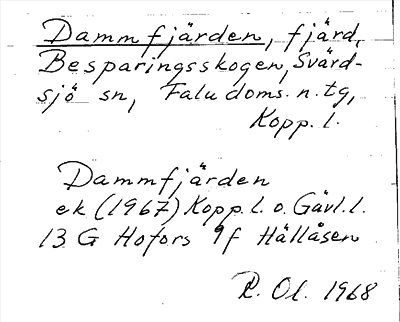 Dammfjärden, fjärd,
Besparingsskogen, Svärd-
sjö sn, Falu doms. n. tg,
Kopp. l.
Dammfjärden
ek (1967) Kopp. l. o. Gävl. l.
13 G Hofors 9f Hällåsen
R. Ol. 1968